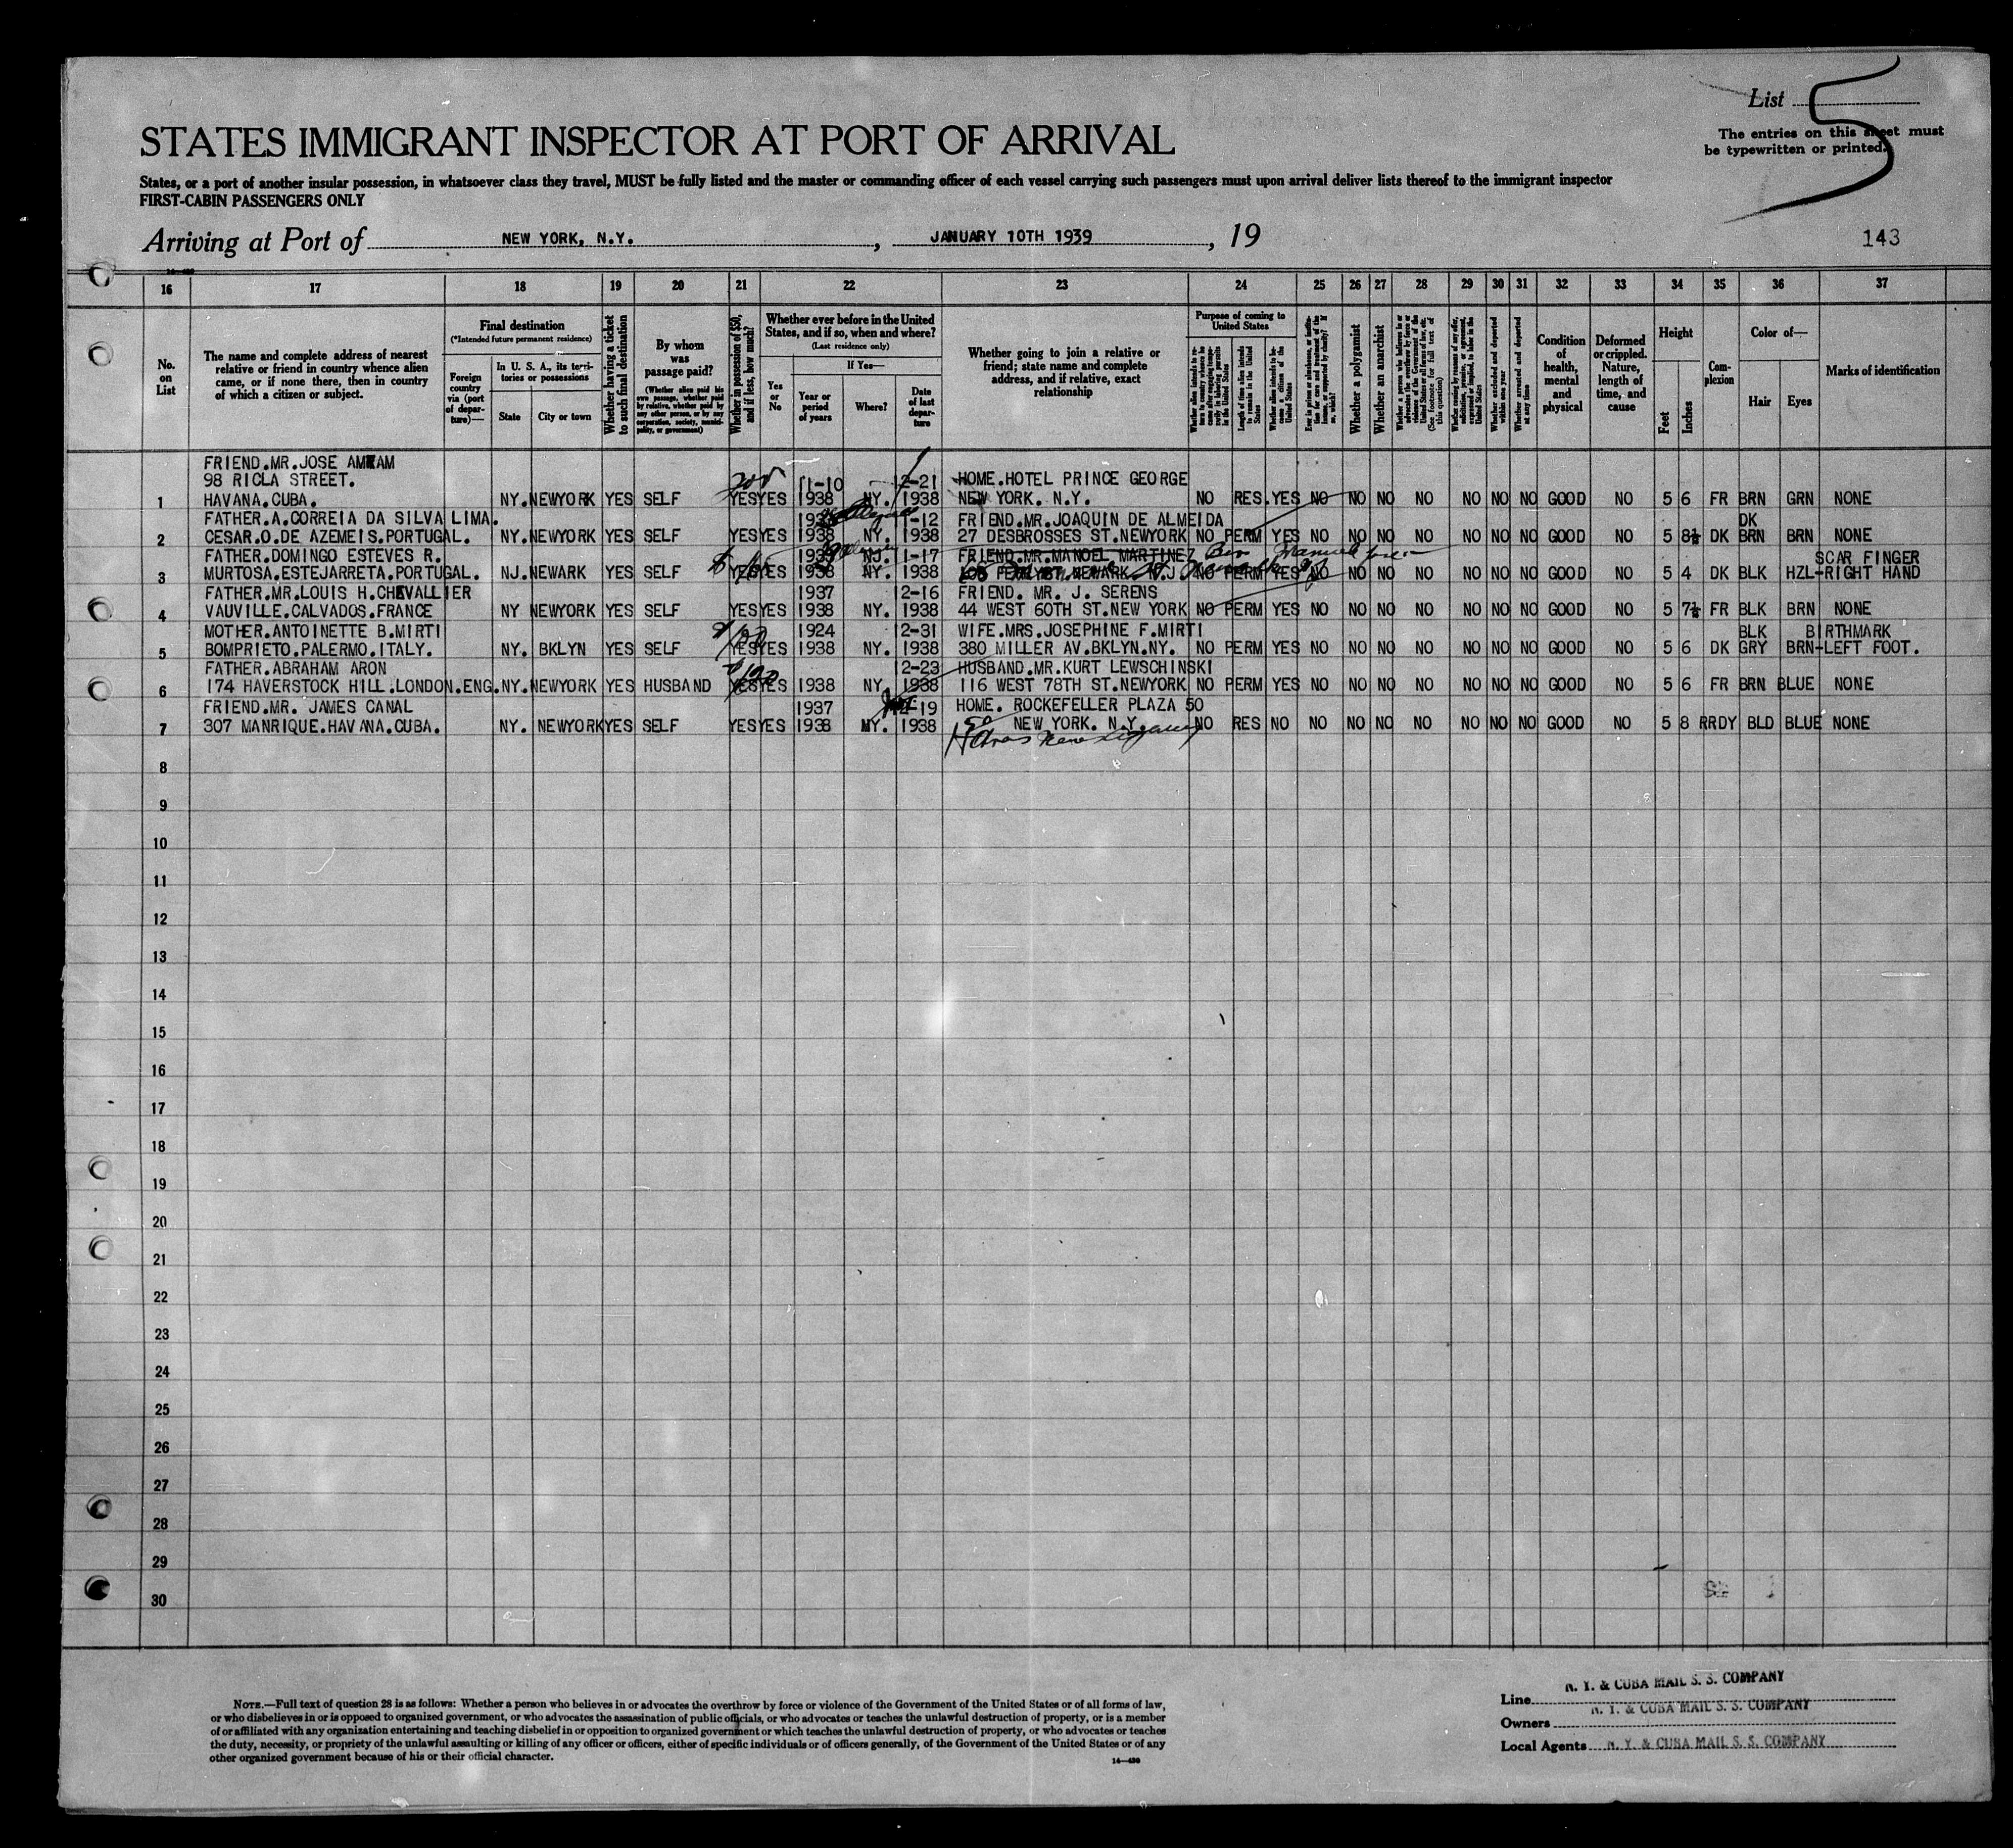 List 5
The entries on this sheet must
be typewritten or printed.
STATES IMMIGRANT INSPECTOR AT PORT OF ARRIVAL
States, or a port of another insular possession, in whatsoever class they travel, MUST be fully listed and the master or commanding officer of each vessel carrying such passengers must upon arrival deliver lists thereof to the immigrant inspector
FIRST-CABIN PASSENGERS ONLY
Arriving at Port of NEW YORK, N.Y. , JANUARY 10TH 1939 , 19
143
16 17 18 19 20 21 22 23 24 25 26 27 28 29 30 31 32 33 34 35 36 37
No. on List
The name and complete address of nearest
relative or friend in country whence alien
came, or if none there, then in country
of which a citizen or subject.
Final destination
(*Intended future permanent residence)
Foreign country via (port of departure)—
In U. S. A., its territories or possessions
State
City or town
Whether having a ticket to such final destination
By whom was passage paid?
(Whether alien paid his own passage, whether paid by relative, whether paid by any other person, or by any corporation, society, municipality, or government)
Whether in possession of $50, and if less, how much?
Whether ever before in the United
States, and if so, when and where?
(Last residence only)
Yes or No
If Yes—
Year or period of years
Where?
Date of last departure
Whether going to join a relative or
friend; state name and complete
address, and if relative, exact
relationship
Purpose of coming to United States
Length of time alien intends to remain in the United States
Whether alien intends to become a citizen of the United States
Whether a polygamist
Whether an anarchist
(See footnote for full text of this question)
Whether excluded and deported within one year
Whether arrested and deported at any time
Condition of health, mental and physical
Deformed or crippled. Nature, length of time, and cause
Height
Feet
Inches
Complexion
Color of—
Hair
Eyes
Marks of identification
FRIEND.MR.JOSE
98 RICLA STREET. 11-10 12-21 HOME.HOTEL PRINCE GEORGE
1 HAVANA.CUBA. NY. NEWYORK YES SELF YES YES 1938 NY. 1938 NEW YORK. N.Y. NO RES. YES NO NO NO NO NO NO NO GOOD NO 5 6 FR BRN GRN NONE
FATHER.A.CORREIA DA SILVA LIMA. 11-12 FRIEND.MR.JOAQUIN DE ALMEIDA DK
2 CESAR.O.DE AZEMEIS.PORTUGAL. NY. NEWYORK YES SELF YES YES 1938 NY. 1938 27 DESBROSSES ST.NEWYORK NO PERM YES NO NO NO NO NO NO NO GOOD NO 5 8½ DK BRN BRN NONE
FATHER.DOMINGO ESTEVES R. NJ. 11-17 FRIEND.MR.MANOEL MARTINEZ SCAR FINGER
3 MURTOSA.ESTEJARRETA.PORTUGAL. NJ. NEWARK YES SELF YES YES 1938 NY. 1938 NEWARK N.J NO PERM YES NO NO NO NO NO NO NO GOOD NO 5 4 DK BLK HZL-RIGHT HAND
FATHER.MR.LOUIS H.CHEVALLIER 1937 12-16 FRIEND. MR. J. SERENS
4 VAUVILLE.CALVADOS.FRANCE NY NEWYORK YES SELF YES YES 1938 NY. 1938 44 WEST 60TH ST.NEW YORK NO PERM YES NO NO NO NO NO NO NO GOOD NO 5 7½ FR BLK BRN NONE
MOTHER.ANTOINETTE B.MIRTI 1924 12-31 WIFE.MRS.JOSEPHINE F.MIRTI BLK BIRTHMARK
5 BOMPRIETO.PALERMO.ITALY. NY. BKLYN YES SELF YES YES 1938 NY. 1938 380 MILLER AV.BKLYN.NY. NO PERM YES NO NO NO NO NO NO NO GOOD NO 5 6 DK GRY BRN-LEFT FOOT.
FATHER.ABRAHAM ARON 12-23 HUSBAND.MR.KURT LEWSCHINSKI
6 174 HAVERSTOCK HILL.LONDON.ENG. NY. NEWYORK YES HUSBAND YES YES 1938 NY. 1938 116 WEST 78TH ST.NEWYORK NO PERM YES NO NO NO NO NO NO NO GOOD NO 5 6 FR BRN BLUE NONE
FRIEND.MR. JAMES CANAL 1937 HOME. ROCKEFELLER PLAZA 50
7 307 MANRIQUE.HAVANA.CUBA. NY. NEWYORK YES SELF YES YES 1938 NY. 1938 NEW YORK. N.Y. NO RES NO NO NO NO NO NO NO NO GOOD NO 5 8 RRDY BLD BLUE NONE
8
9
10
11
12
13
14
15
16
17
18
19
20
21
22
23
24
25
26
27
28
29
30
NOTE.—Full text of question 28 is as follows: Whether a person who believes in or advocates the overthrow by force or violence of the Government of the United States or of all forms of law,
or who disbelieves in or is opposed to organized government, or who advocates the assassination of public officials, or who advocates or teaches the unlawful destruction of property, or is a member
of or affiliated with any organization entertaining and teaching disbelief in or opposition to organized government or which teaches the unlawful destruction of property, or who advocates or teaches
the duty, necessity, or propriety of the unlawful assaulting or killing of any officer or officers, either of specific individuals or of officers generally, of the Government of the United States or of any
other organized government because of his or their official character.
14—430
Line N. Y. & CUBA MAIL S. S. COMPANY
Owners N. Y. & CUBA MAIL S. S. COMPANY
Local Agents N. Y. & CUBA MAIL S. S. COMPANY